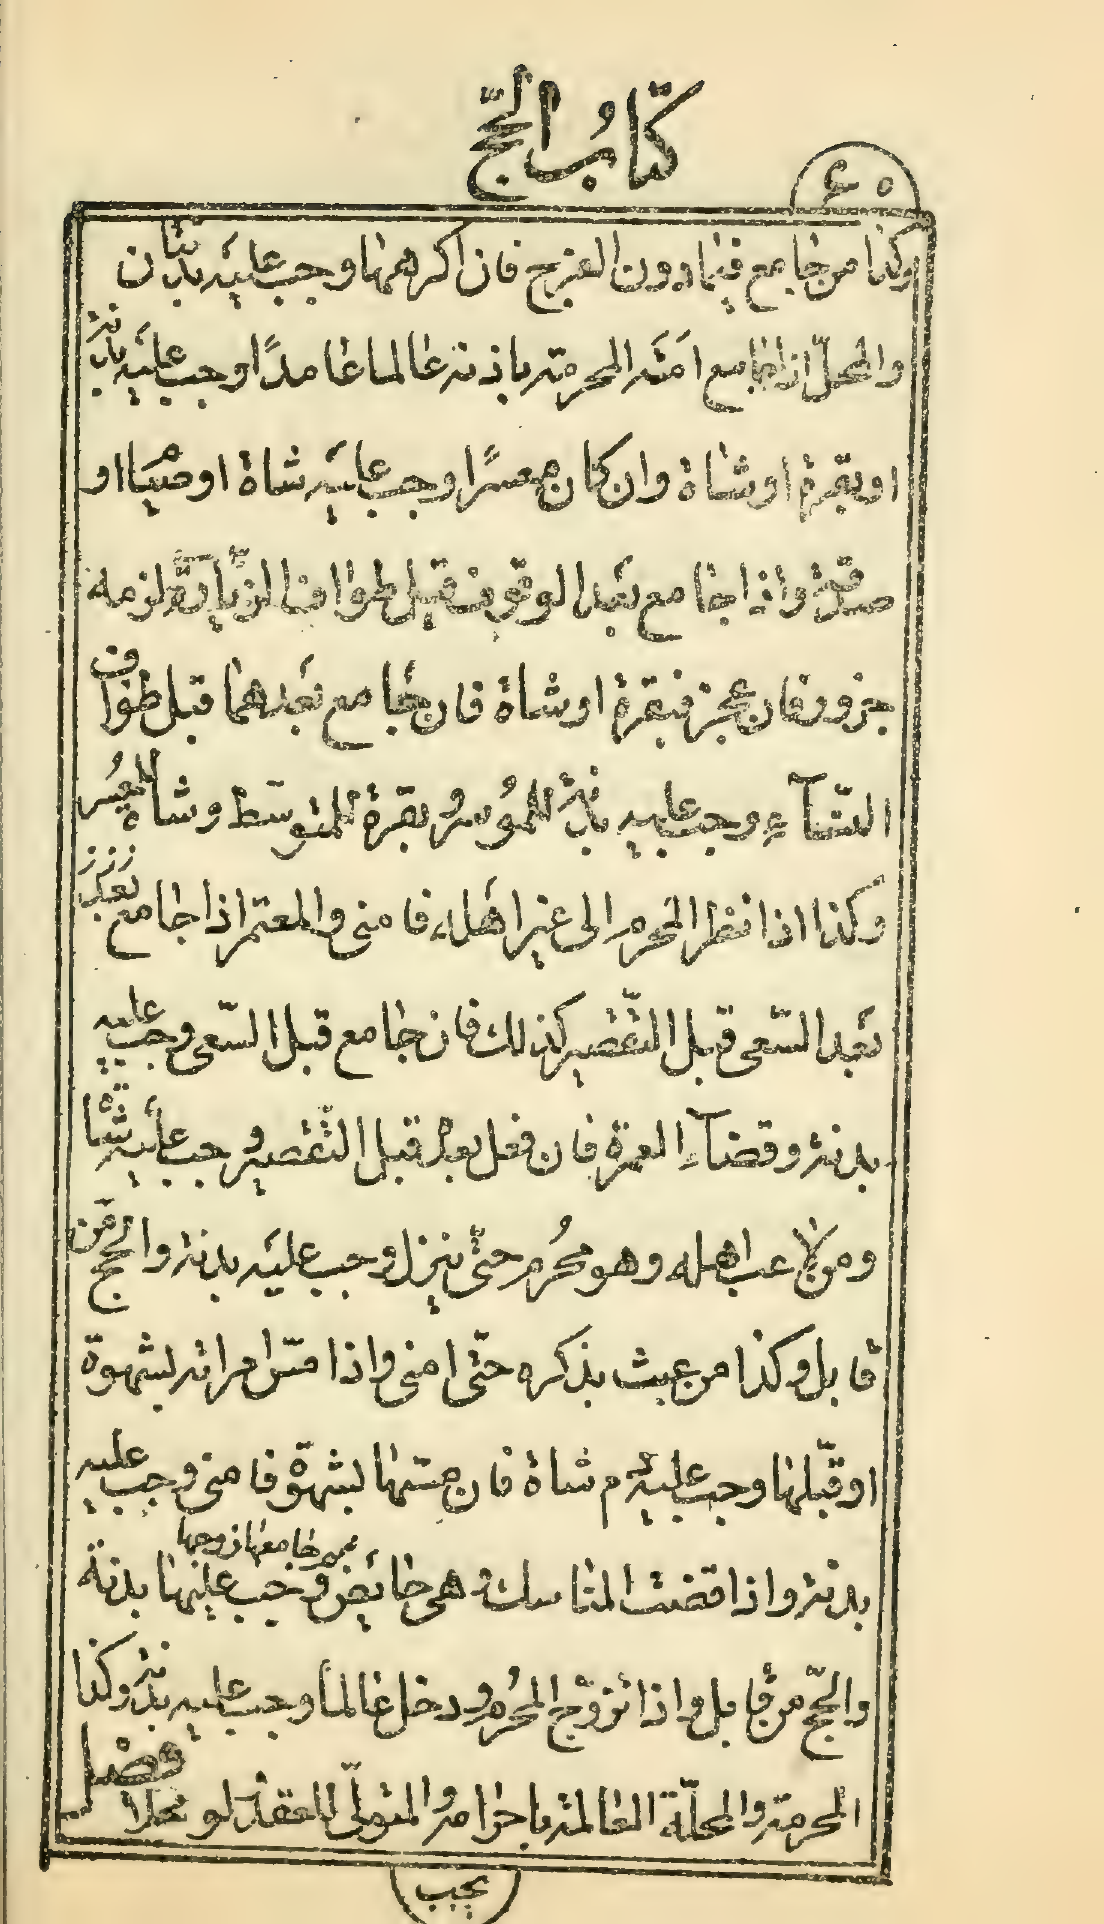 كتاب الحجّ
٤٥
وكذا من جامع فيما دون الفرج فان اكرهها وجب عليه بدنتان
والمحلّ اذا جامع امته المحرمة باذنه عالما عامدًا وجب عليه بدنة
او بقرة او شاة وان كان معسرًا وجب عليه شاة او صيام او
صدقة واذا جامع بعد الوقوف قبل طواف الزيارة لزمه
جزور فان عجز فبقرة او شاة فان جامع بعدهما قبل طواف
النّساء وجب عليه بدنة للموُسر وبقرة للمتوسّط وشاة للمعُسر
وكذا اذا نظر المحرم الى غير اهله فامنى والمعتمر اذا جامع
بعد السّعى قبل التّقصير كذلك فان جامع قبل السّعى وجب عليه
بدنة وقضاء العمرة فان فعل بعد قبل التّقصير وجب عليه شاة
ومن لاعب اهله وهو محُرم حتّى ينزل وجب عليه بدنة والحجّ من
قابل وكذا من عبث بذكره حتّى امنى واذا مسّ امراته لشهوة
او قبّلها وجب عليه دم شاة فان مسّها بشهوة فامنى وجب عليه
بدنة واذا قضت المناسك وهى حائض ثم جامعها زوجها وجب عليها بدنة
والحجّ من قابل واذا تزوّج المحُرم ودخل عالماً وجب عليه بدنة وكذا
المحرمة والمحلّة العالمة باحرامه والمتولّى للعقد لو محلا فصل
يجب